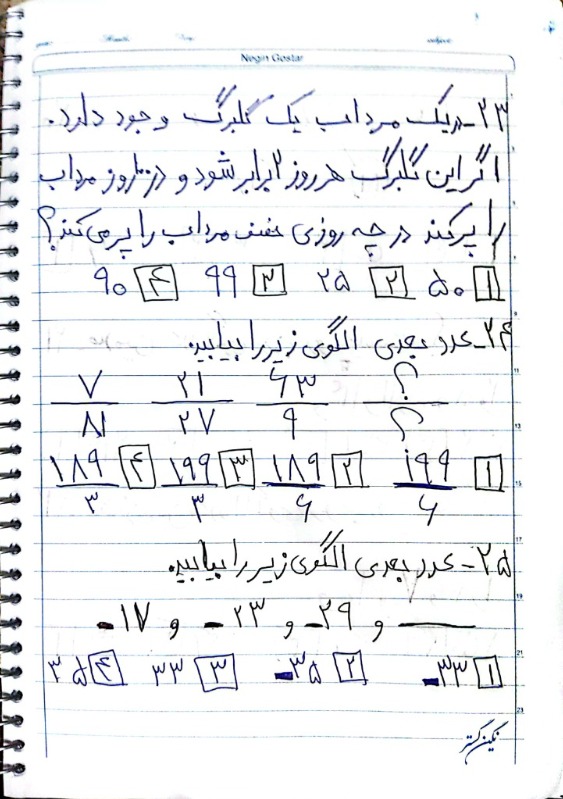 Negin Gostar
۲۳-در یک مرداب یک گلبرگ وجود دارد.
اگر این گلبرگ هر روز ۲ برابر شود و در ۱۰۰ روز مرداب
را پر کند در چه روزی نصف مرداب را پر می‌کند؟
۱ ۵۰ ۲ ۲۵ ۳ ۹۹ ۴ ۹۰
۲۴-عدد بعدی الگوی زیر را بیابید.
۷/۸۱ ۲۱/۲۷ ۶۳/۹ ؟/؟
۱ ۱۹۹/۶ ۲ ۱۸۹/۶ ۳ ۱۹۹/۳ ۴ ۱۸۹/۳
۲۵-عدد بعدی الگوی زیر را بیابید.
-۱۷ و -۲۳ و -۲۹ و ____
۱ -۳۳ ۲ -۳۵ ۳ ۳۳ ۴ ۳۵
نگین گستر